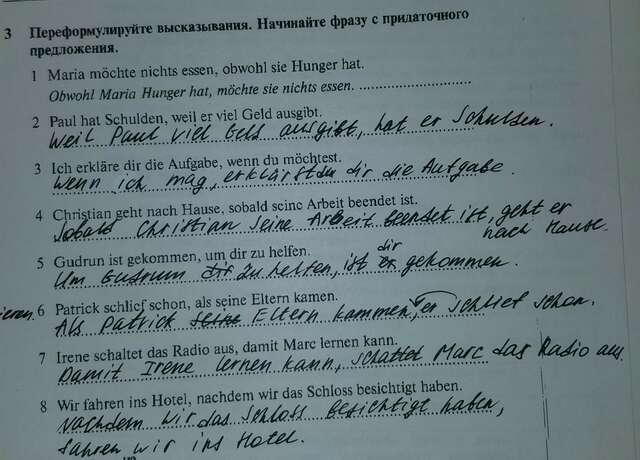 3 Переформулируйте высказывания. Начинайте фразу с придаточного
предложения.
1 Maria möchte nichts essen, obwohl sie Hunger hat.
Obwohl Maria Hunger hat, möchte sie nichts essen.
2 Paul hat Schulden, weil er viel Geld ausgibt.
Weil Paul viel Geld ausgibt, hat er Schulden.
3 Ich erkläre dir die Aufgabe, wenn du möchtest.
Wenn ich mag, erklärst du dir die Aufgabe.
4 Christian geht nach Hause, sobald seine Arbeit beendet ist.
Sobald Christian seine Arbeit beendet ist, geht er
nach Hause.
5 Gudrun ist gekommen, um dir zu helfen.
dir
Um Gudrun dir zu helfen, ist er gekommen.
6 Patrick schlief schon, als seine Eltern kamen.
Als Patrick seine Eltern kammen, er schlief schon.
7 Irene schaltet das Radio aus, damit Marc lernen kann.
Damit Irene lernen kann, schaltet Marc das Radio aus.
8 Wir fahren ins Hotel, nachdem wir das Schloss besichtigt haben.
Nachdem wir das Schloss besichtigt haben,
fahren wir ins Hotel.